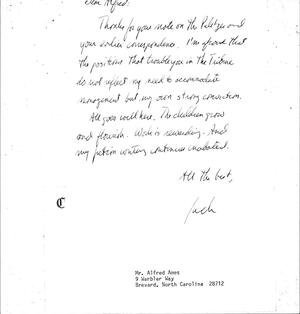 Dear Alfred:
Thanks for your note on the Pulitzer and
your earlier correspondence. I'm afraid that
the positions that trouble you in the Tribune
do not reflect my need to accommodate
management but my own strong conviction.
All goes well here. The children grow
and flourish. Work is rewarding. And
my fiction writing continues unabated.
All the best,
Jack
C
Mr. Alfred Ames
9 Warbler Way
Brevard, North Carolina 28712